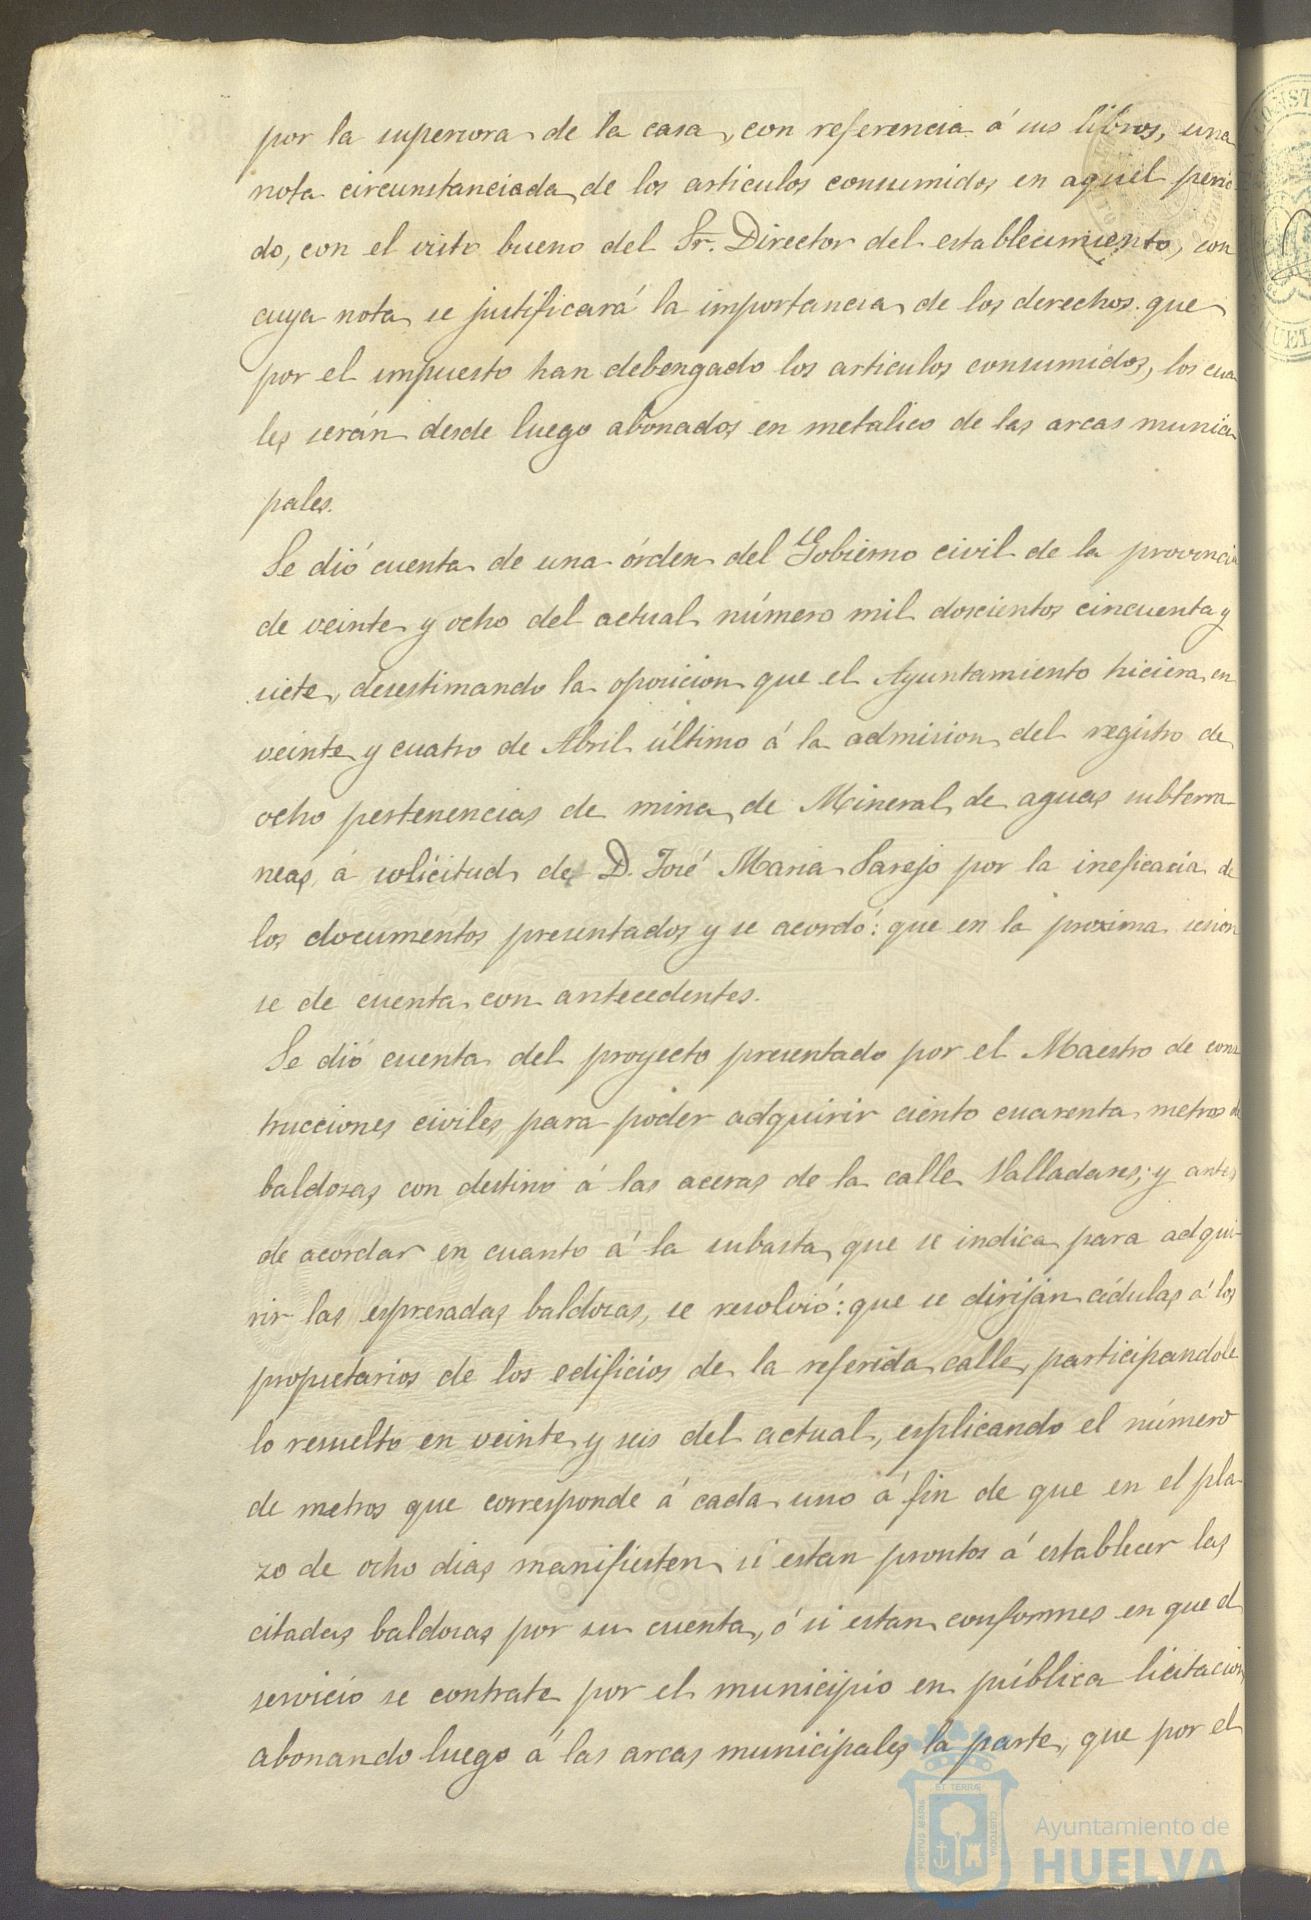 por la superiora de la casa, con referencia á sus libros, una
nota circunstanciada de los articulos consumidos en aquel perio
do, con el visto bueno del Sr. Director del establecimiento, con
cuya nota se justificará la importancia de los derechos que
por el impuesto han debengado los articulos consumidos, los cua
les serán desde luego abonados en metalico de las arcas munici
pales.
Se dió cuenta de una órden del Gobierno civil de la provincia
de veinte y ocho del actual número mil doscientos cincuenta y
siete, desestimando la oposicion que el Ayuntamiento hiciera en
veinte y cuatro de Abril último á la admision del registro de
ocho pertenencias de mina de Mineral de aguas subterra
neas, á solicitud de D. José Maria Parejo por la ineficacia de
los documentos presentados y se acordó: que en la proxima sesion
se de cuenta con antecedentes.
Se dió cuenta del proyecto presentado por el Maestro de cons
trucciones civiles para poder adquirir ciento cuarenta metros de
baldosas con destino á las aceras de la calle Valladares; y antes
de acordar en cuanto á la subasta que se indica para adqui-
rir las espresadas baldosas, se resolvió: que se dirijan cédulas á los
propietarios de los edificios de la referida calle, participandole
lo resuelto en veinte y seis del actual, esplicando el número
de metros que corresponde á cada uno á fin de que en el pla-
zo de ocho dias manifiesten si estan prontos á establecer las
citadas baldosas por su cuenta, ó si estan conformes en que el
servicio se contrate por el municipio en pública licitacion,
abonando luego á las arcas municipales la parte, que por el
ET TERRÆ
PORTUS MARIS
CUSTODIA
Ayuntamiento de
HUELVA